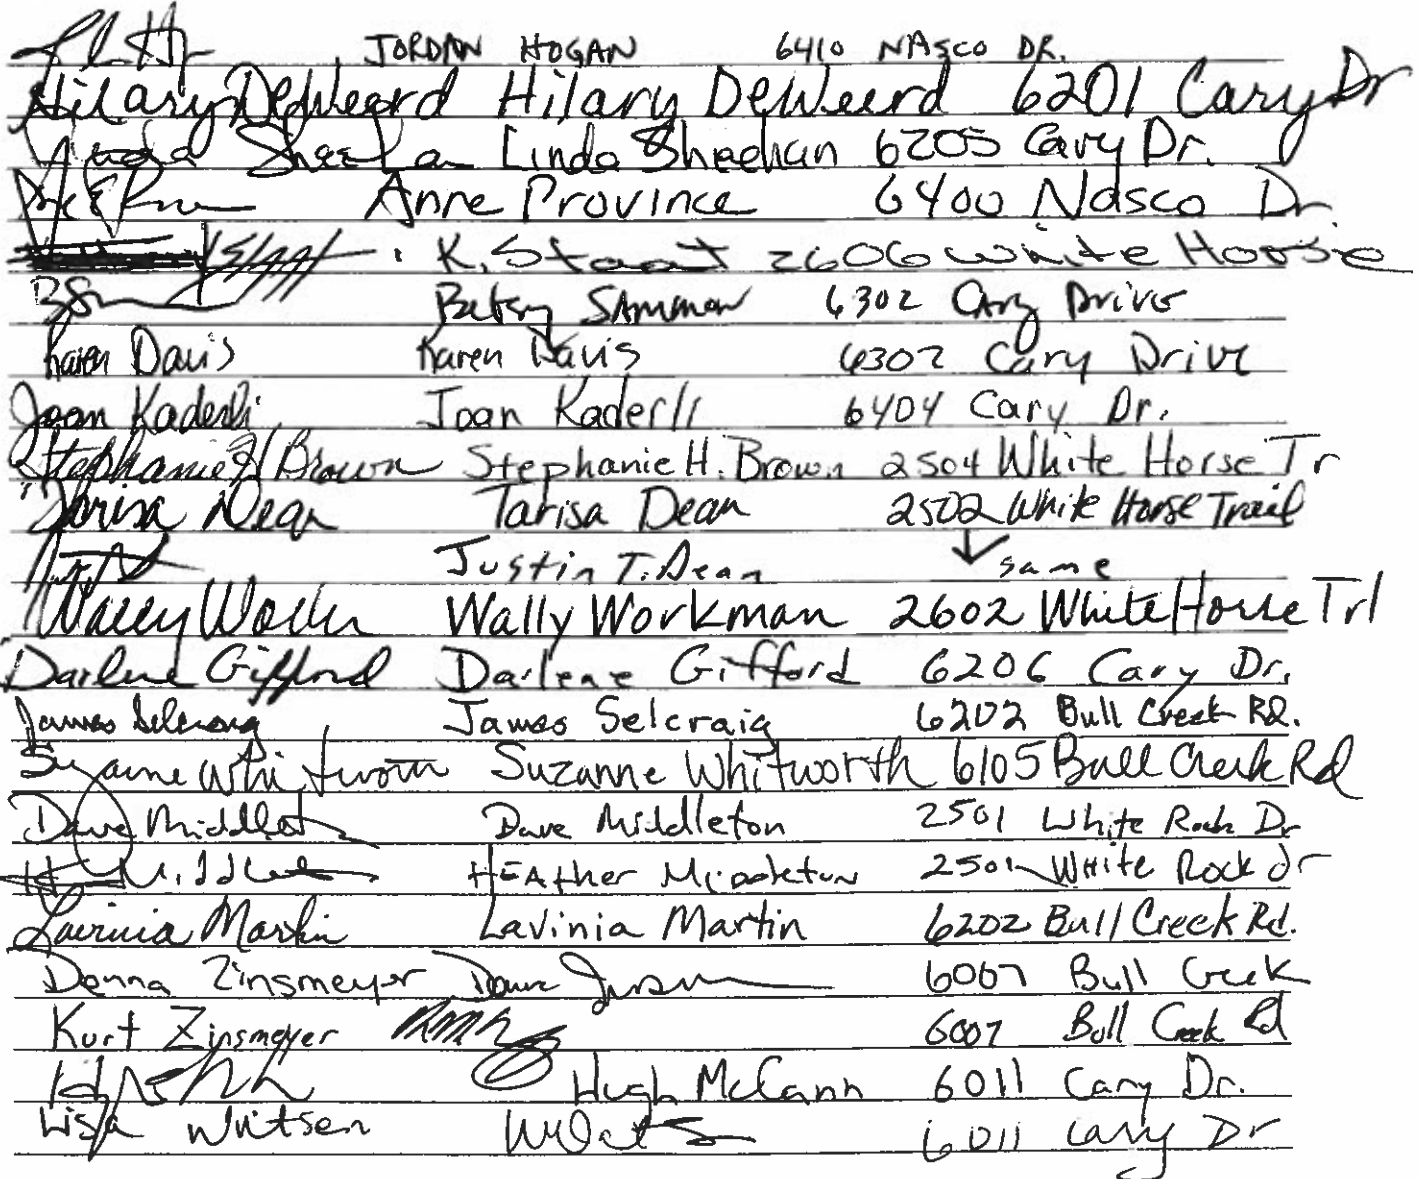 JORDAN HOGAN 6410 NASCO DR.
Hilary DeWeerd Hilary DeWeerd 6201 Cary Dr
Linda Sheehan Linda Sheehan 6205 Cary Dr.
Anne Province 6400 Nasco Dr.
K. Staat 2606 White Horse
Betsy 6302 Cary Drive
Karen Davis Karen Davis 6302 Cary Drive
Joan Kaderli Joan Kaderli 6404 Cary Dr.
Stephanie H Brown Stephanie H. Brown 2504 White Horse Tr
Tarisa Dean Tarisa Dean 2502 White Horse Trail
Justin T. Dean ↓ same
Wally Wally Workman 2602 White Horse Trl
Darlene Gifford Darlene Gifford 6206 Cary Dr.
James Selcraig James Selcraig 6202 Bull Creek Rd.
Suzanne Whitworth Suzanne Whitworth 6105 Bull Creek Rd
Dave Middleton Dave Middleton 2501 White Rock Dr
HEAther Middleton 2501 WHite Rock dr
Lavinia Martin Lavinia Martin 6202 Bull Creek Rd.
Donna Zinsmeyer 6007 Bull Creek
Kurt Zinsmeyer 6007 Bull Creek Rd
Hugh McCann 6011 Cary Dr.
Lisa 6011 Cary Dr